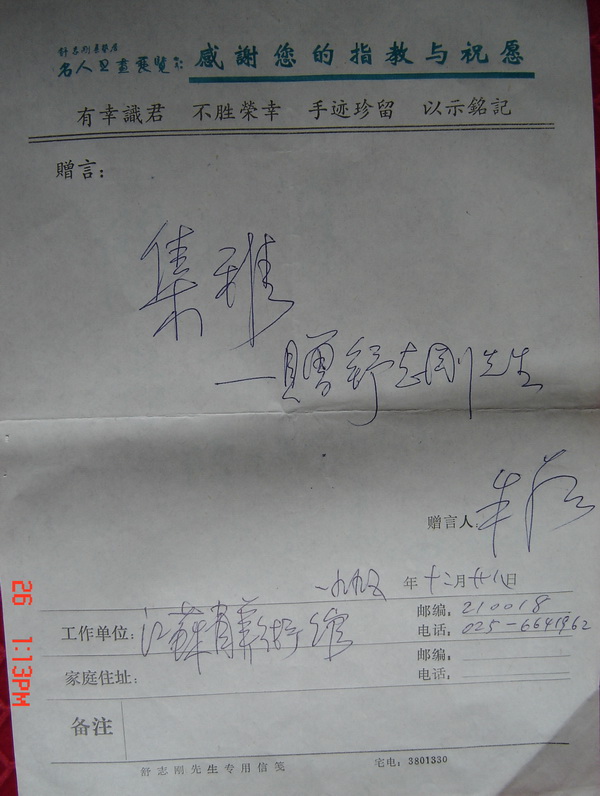 舒志刚喜榮屋
名人书畫展覽 感謝您的指教与祝愿
有幸識君 不胜榮幸 手迹珍留 以示銘記
赠言:
集雅
—赠舒志刚先生
赠言人:
一九九五年十二月廿八日
工作单位: 江蘇省美術馆 邮编: 210018
电话: 025-6641962
家庭住址: 邮编:
电话:
备注
舒志刚先生专用信笺 宅电: 3801330
26 1:13PM